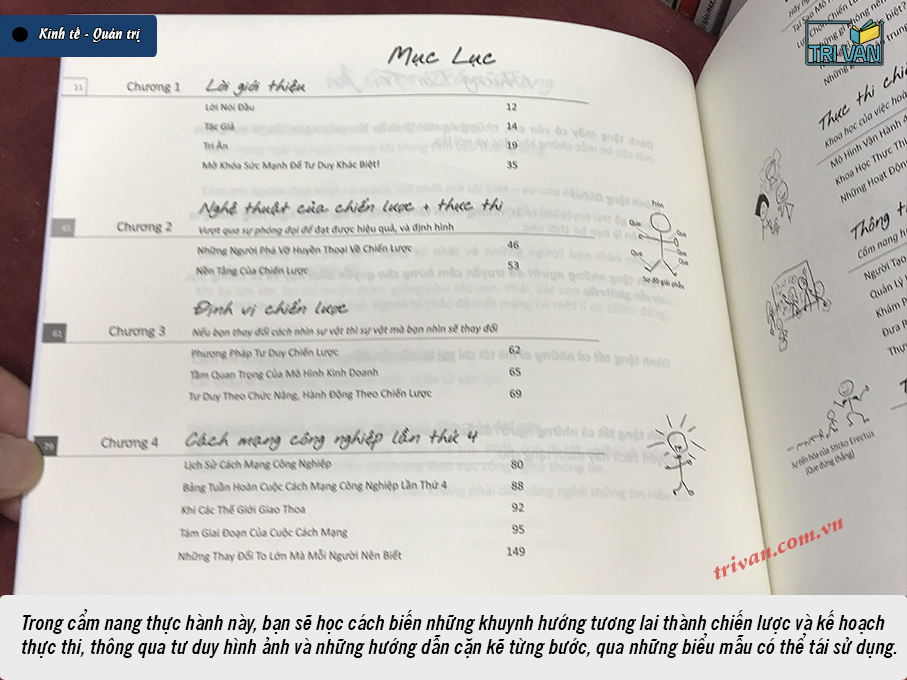 Kinh tế - Quản trị
TRI VAN
Mục Lục
11 Chương 1 Lời giới thiệu
Lời Nói Đầu 12
Tác Giả 14
Tri Ân 19
Mở Khóa Sức Mạnh Để Tư Duy Khác Biệt! 35
45 Chương 2 Nghệ thuật của chiến lược + thực thi
Vượt qua sự phóng đại để đạt được hiệu quả, và định hình
Những Người Phá Vỡ Huyền Thoại Về Chiến Lược 46
Nền Tảng Của Chiến Lược 53
Tròn
Que
Que
Que
Que
Que
Que
Sơ đồ giải phẫu
61 Chương 3 Định vị chiến lược
Nếu bạn thay đổi cách nhìn sự vật thì sự vật mà bạn nhìn sẽ thay đổi
Phương Pháp Tư Duy Chiến Lược 62
Tầm Quan Trọng Của Mô Hình Kinh Doanh 65
Tư Duy Theo Chức Năng, Hành Động Theo Chiến Lược 69
79 Chương 4 Cách mạng công nghiệp lần thứ 4
Lịch Sử Cách Mạng Công Nghiệp 80
Bảng Tuần Hoàn Cuộc Cách Mạng Công Nghiệp Lần Thứ 4 88
Khi Các Thế Giới Giao Thoa 92
Tám Giai Đoạn Của Cuộc Cách Mạng 95
Những Thay Đổi To Lớn Mà Mỗi Người Nên Biết 149
Thực thi chiế
Khoa học của việc hoà
Mô Hình Vận Hành
Khoa Học Thực Thi
Những Hoạt Động
Thông t
Cẩm nang h
Người Tạo
Quản Lý
Khám P
Đưa R
Thự
Sự tiến hóa của Sticko Erectus
(Que đứng thẳng)
trivan.com.vn
Trong cẩm nang thực hành này, bạn sẽ học cách biến những khuynh hướng tương lai thành chiến lược và kế hoạch
thực thi, thông qua tư duy hình ảnh và những hướng dẫn cặn kẽ từng bước, qua những biểu mẫu có thể tái sử dụng.